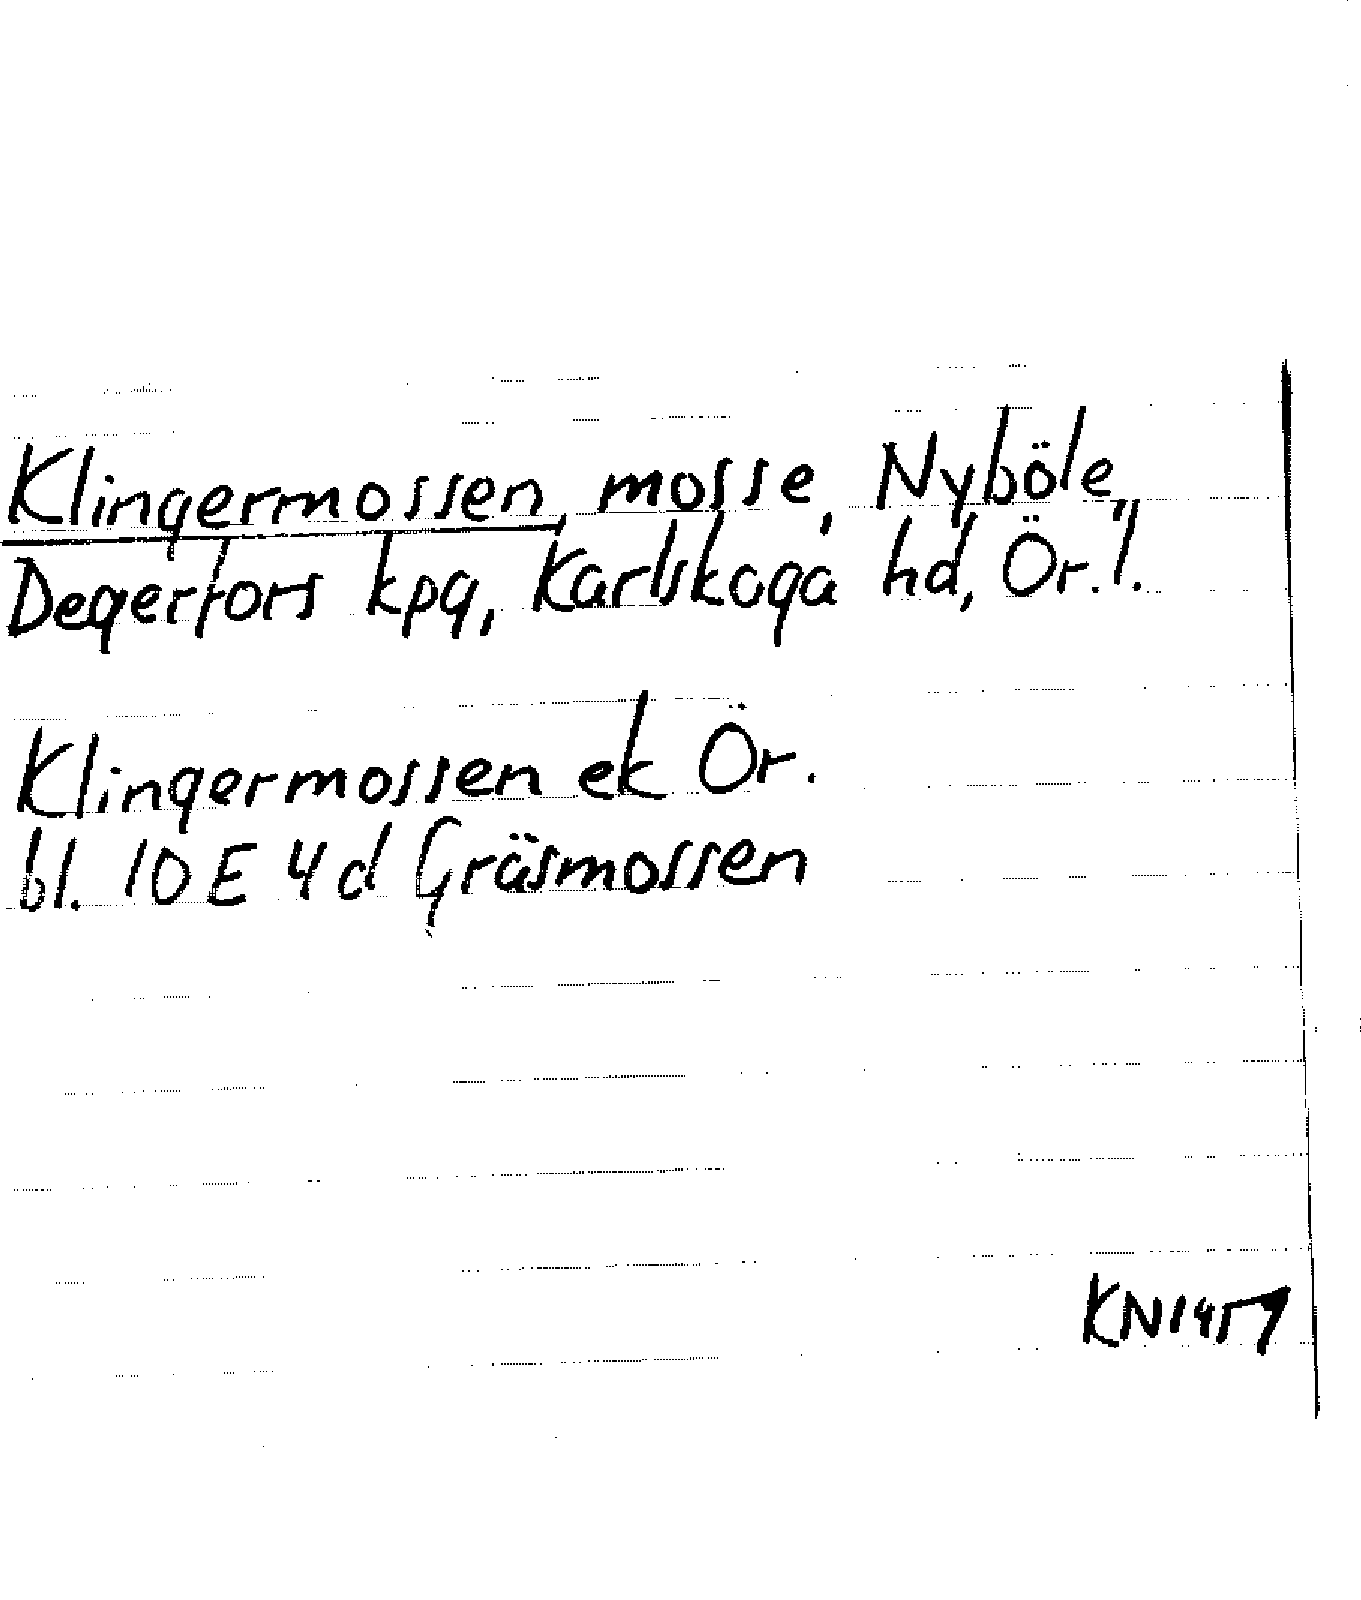 Klingermossen, mosse, Nyböle,
Degerfors kpg, Karlskoga hd, Ör. l.
Klingermossen ek Ör.
bl. 10 E 4 d Gräsmossen